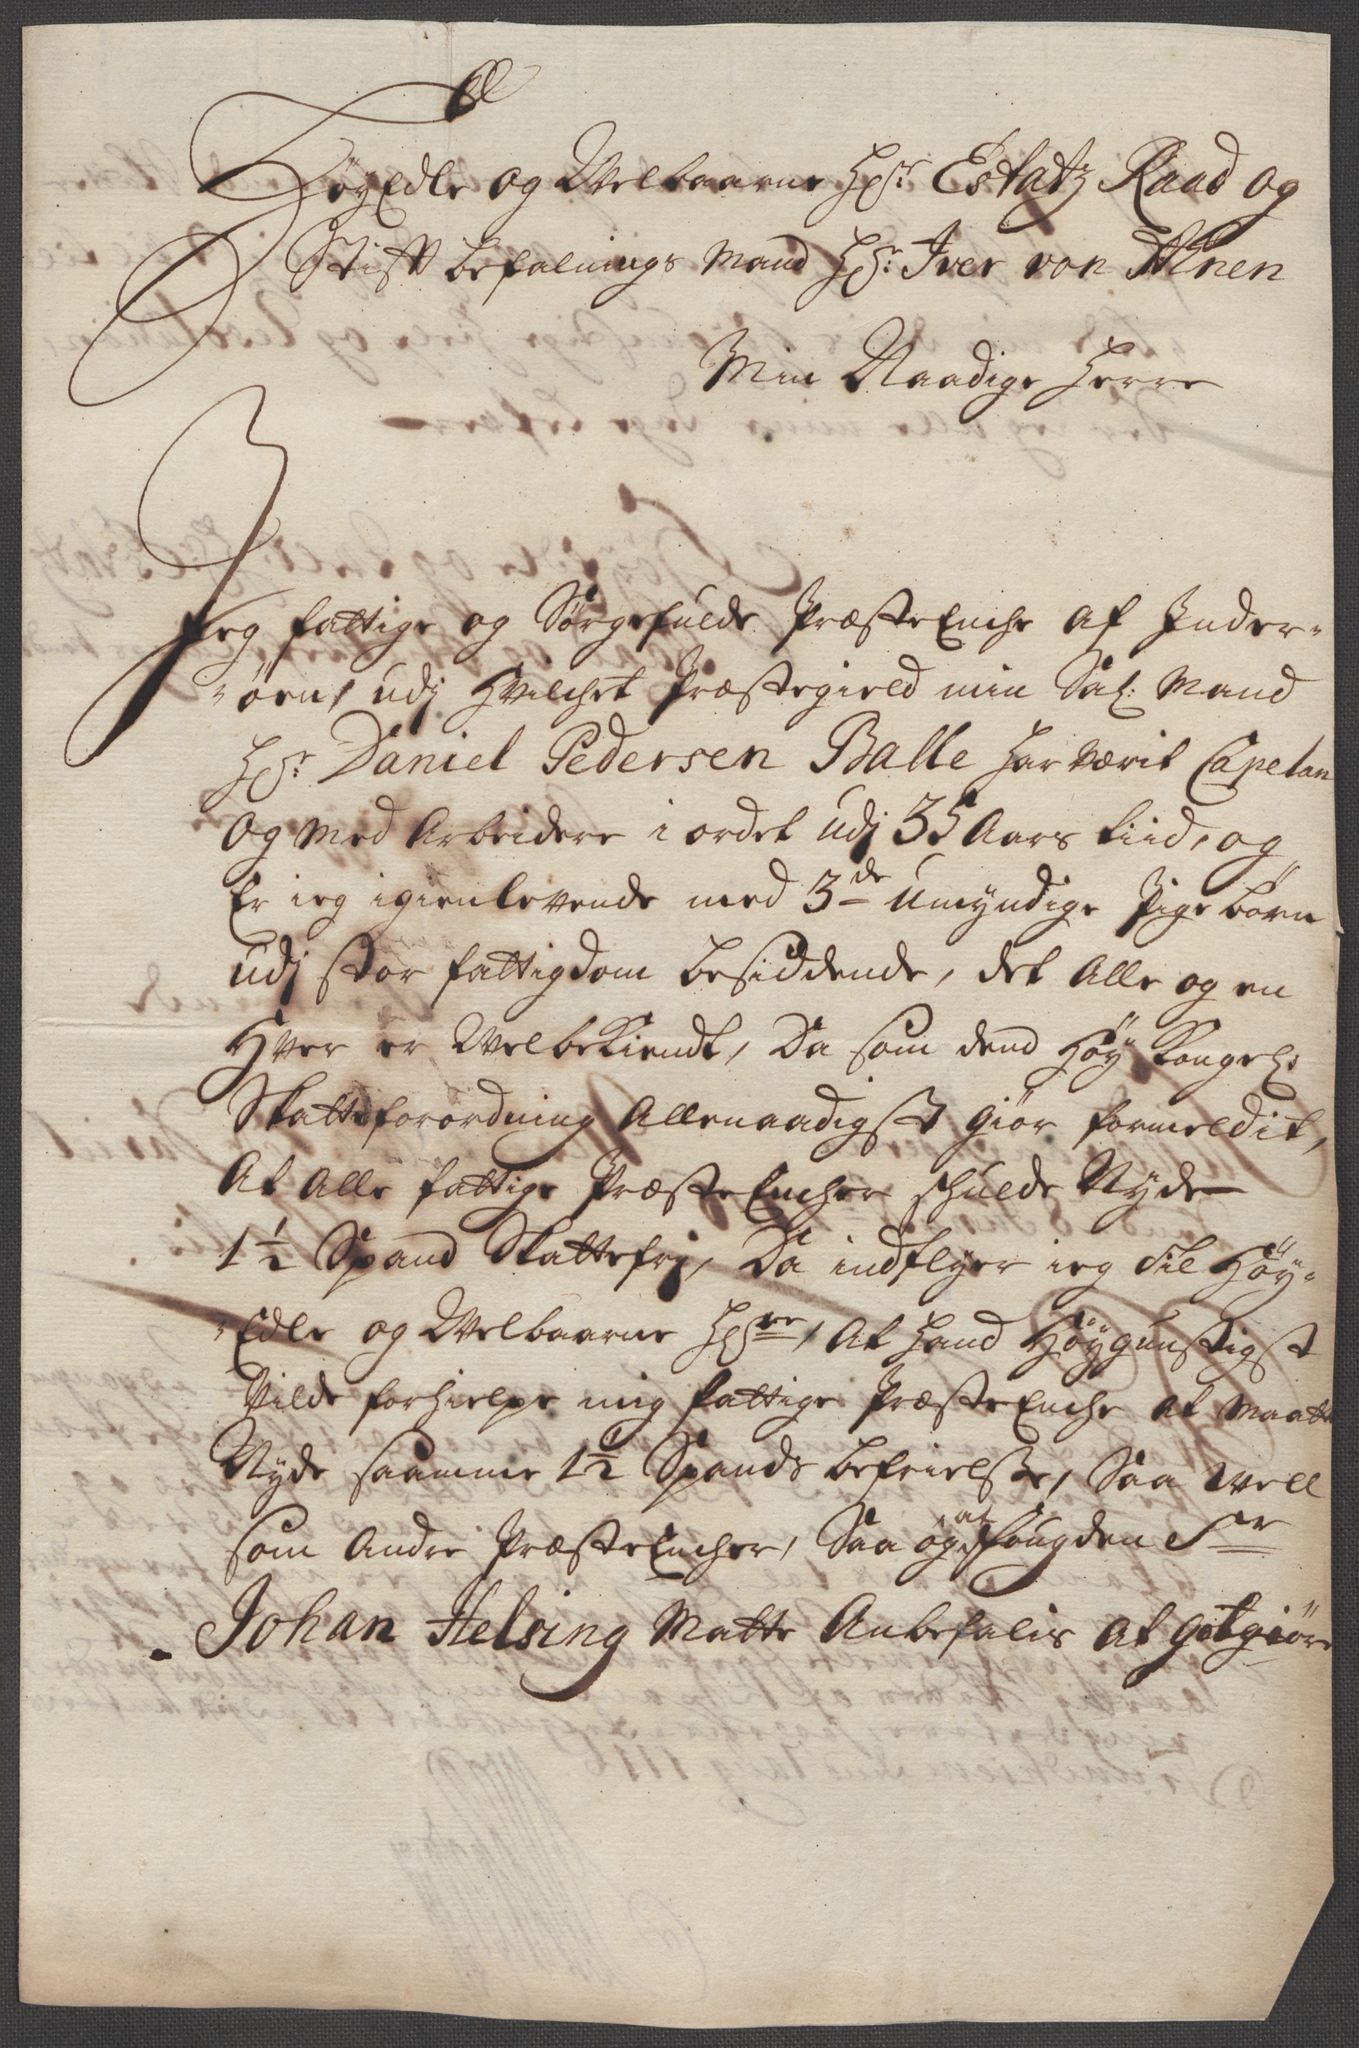 HøyEdle og Welbaarne Hr: Estatz Raad og
Stifft befalnings Mand Hr: Iver von Ahnen
Min Naadige Herre
Jeg fattige og Sørgefulde PræsteEnche af Inder-
øen, udj Hvilchet Præstegield min Sal: Mand
Hr: Daniel Pedersen Balle har værit Capelan
og Med Arbeidere i ordet Udj 35 Aars tiid, og
Er ieg igienlevende med 3de Umyndige Pige børn
udj stor fattigdom besiddende, det Alle og en
Hver er Welbekiendt, Da som dend Høy Kongel:
Skatteforordning Allernaadigst giør formeldit,
At Alle fattige PræsteEncher schulde Nyde
1½ Spand Skattefrj, Da indflyer ieg til Høy-
Edle og Welbaarne Hrre, At hand Høygunstigst
Vilde forhielpe mig fattige PræsteEnche at maatte
Nyde saamme 1½ Spands befrielsse, Saa well
som Andre PræsteEncher, Saa og at Fougden Sr
Johan Helsing Matte Anbefalis at gotgiøre